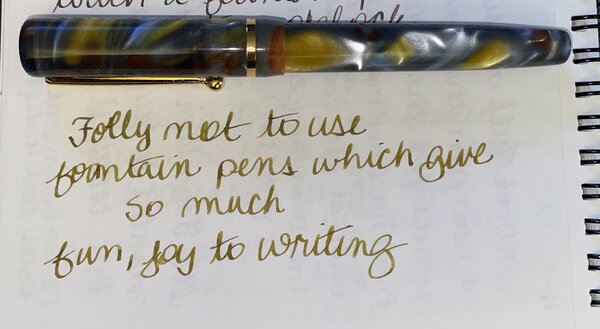 which it
Folly not to use
fountain pens which give
so much
fun, joy to writing